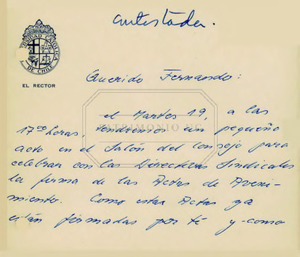 contestada.
EL RECTOR
Querido Fernando:
el Martes 19, a las
17 horas, tendremos un pequeño
acto en el Salón del Consejo para
celebrar con los Directores Sindicales
la firma de las Actas de Aveni-
miento. Como estas Actas ya
están firmadas por ti y como